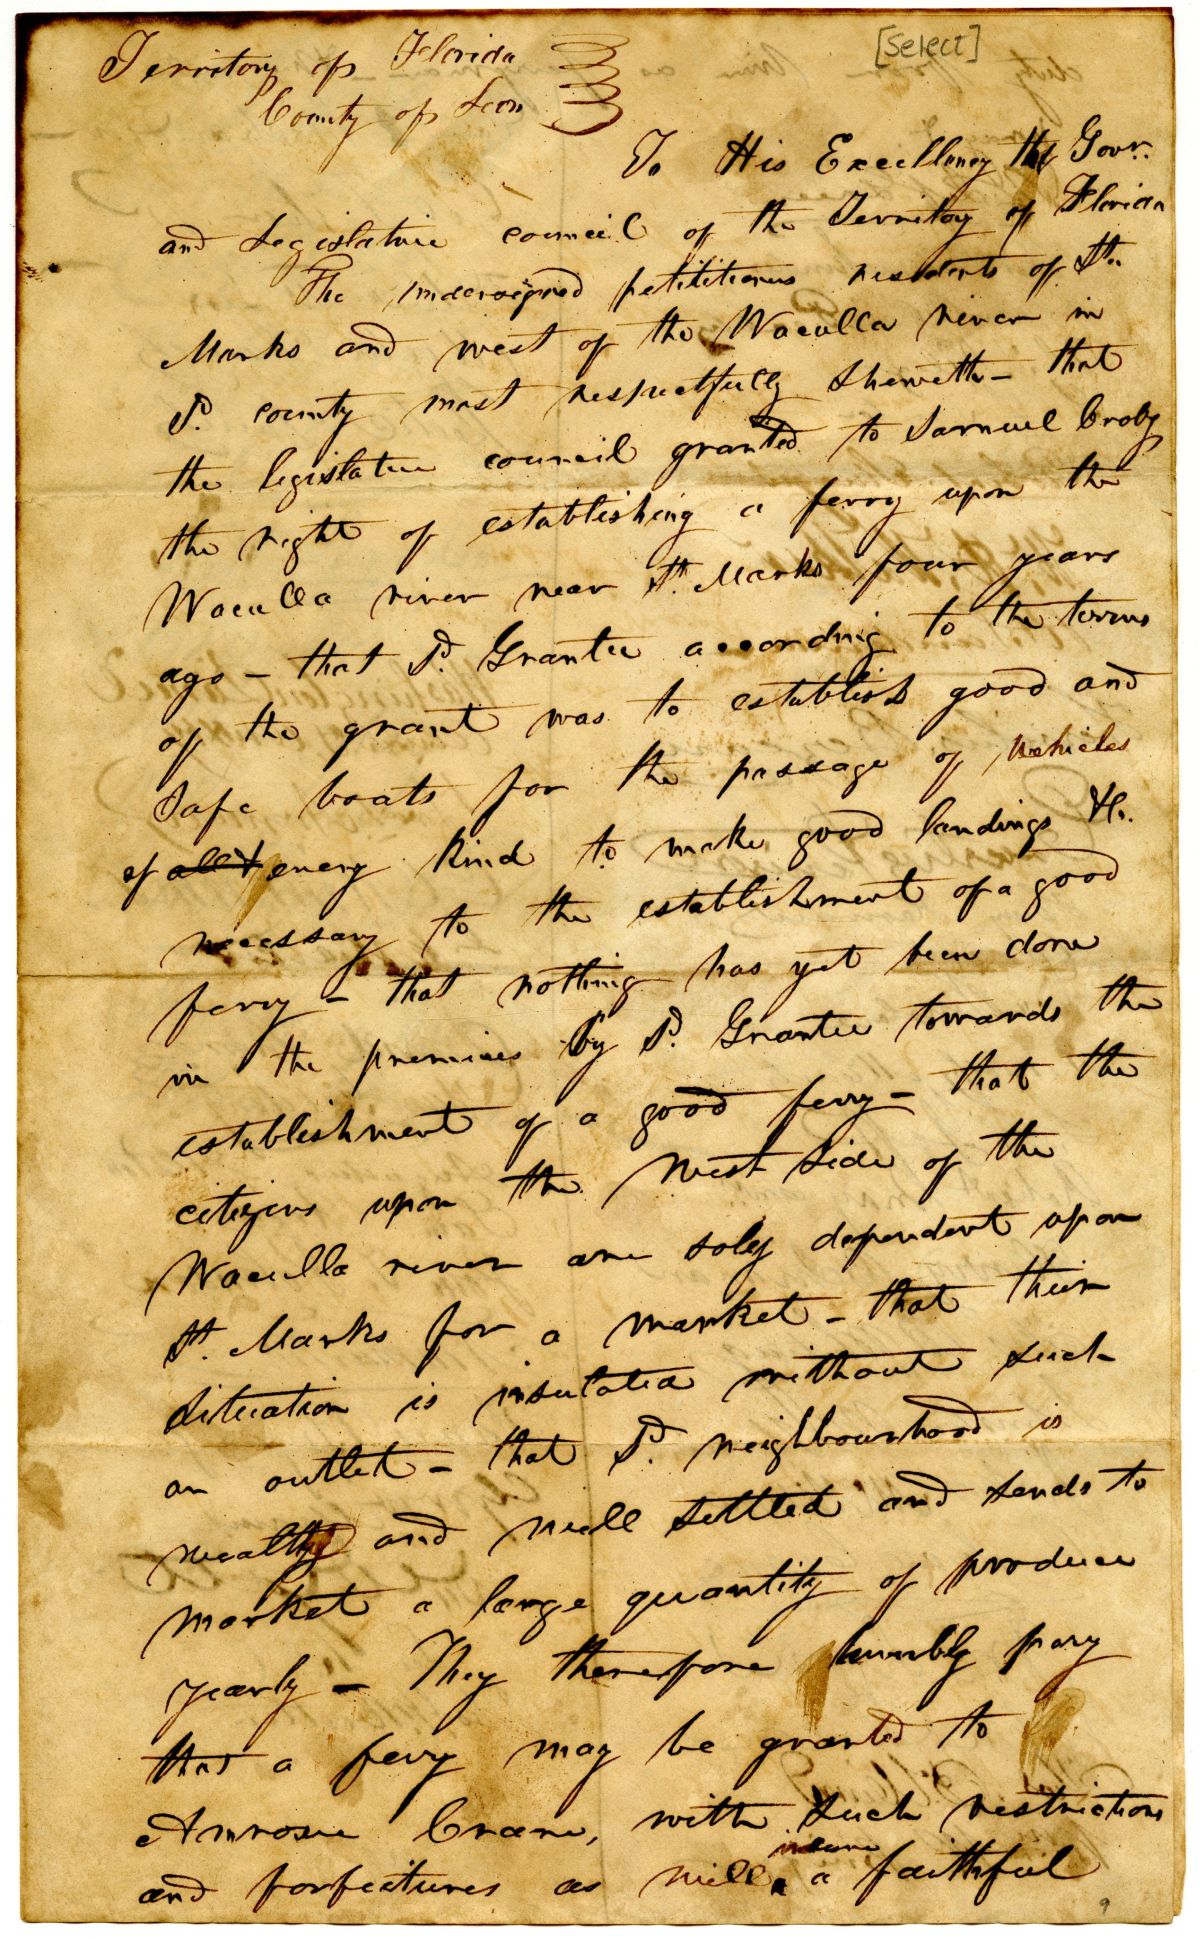 [Select]
Territory of Florida
County of Leon
To His Excellency the Govr.
and Legislative council of the Territory of Florida
The undersigned petitioners residents of St.
Marks and west of the Waculla river in
Sd. county most respectfully Sheweth - that
the legislative council granted to Samuel Croby
the right of establishing a ferry upon the
Waculla river near St. Marks four years
ago - that Sd. Grantee according to the terms
of the grant was to establish good and
Safe boats for the passage of vehicles
of all & every kind to make good landings &c.
necessary to the establishment of a good
ferry - that nothing has yet been done
in the premises by Sd. Grantee towards the
establishment of a good ferry - that the
citizens upon the West Side of the
Waculla river are soly dependent upon
St. Marks for a market - that their
Situation is insulated without such
an outlet - that Sd. neighbourhood is
wealthy and well Settled and sends to
market a large quantity of produce
yearly - They therefore humbly pray
that a ferry may be granted to
Amrose Crane, with such restrictions
and forfeitures as will insure a faithful
9